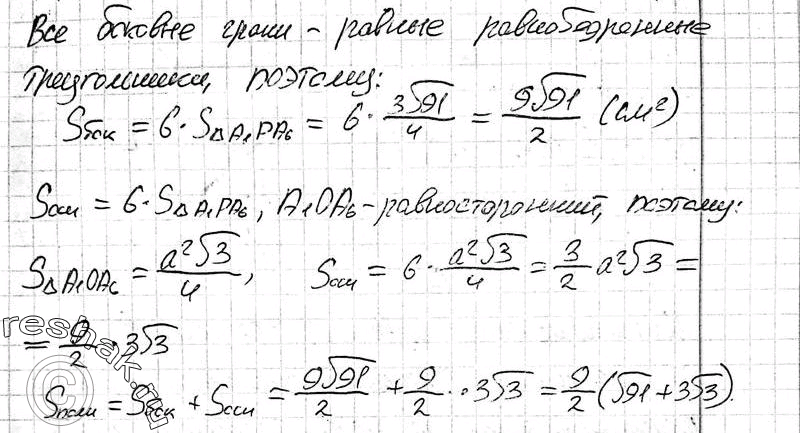 Все боковые грани - равные равнобедренные
треугольники, поэтому:
Sбок = 6·S△A₁PA₆ = 6·3√91/4 = 9√91/2 (см²)
Sосн = 6·S△A₁PA₆, A₁OA₆-равносторонний, поэтому:
S△A₁OA₆ = a²√3/4, Sосн = 6·a²√3/4 = 3/2 a²√3 =
= 9/2·3√3
Sполн = Sбок + Sосн = 9√91/2 + 9/2·3√3 = 9/2(√91+3√3).
reshak.ru
©